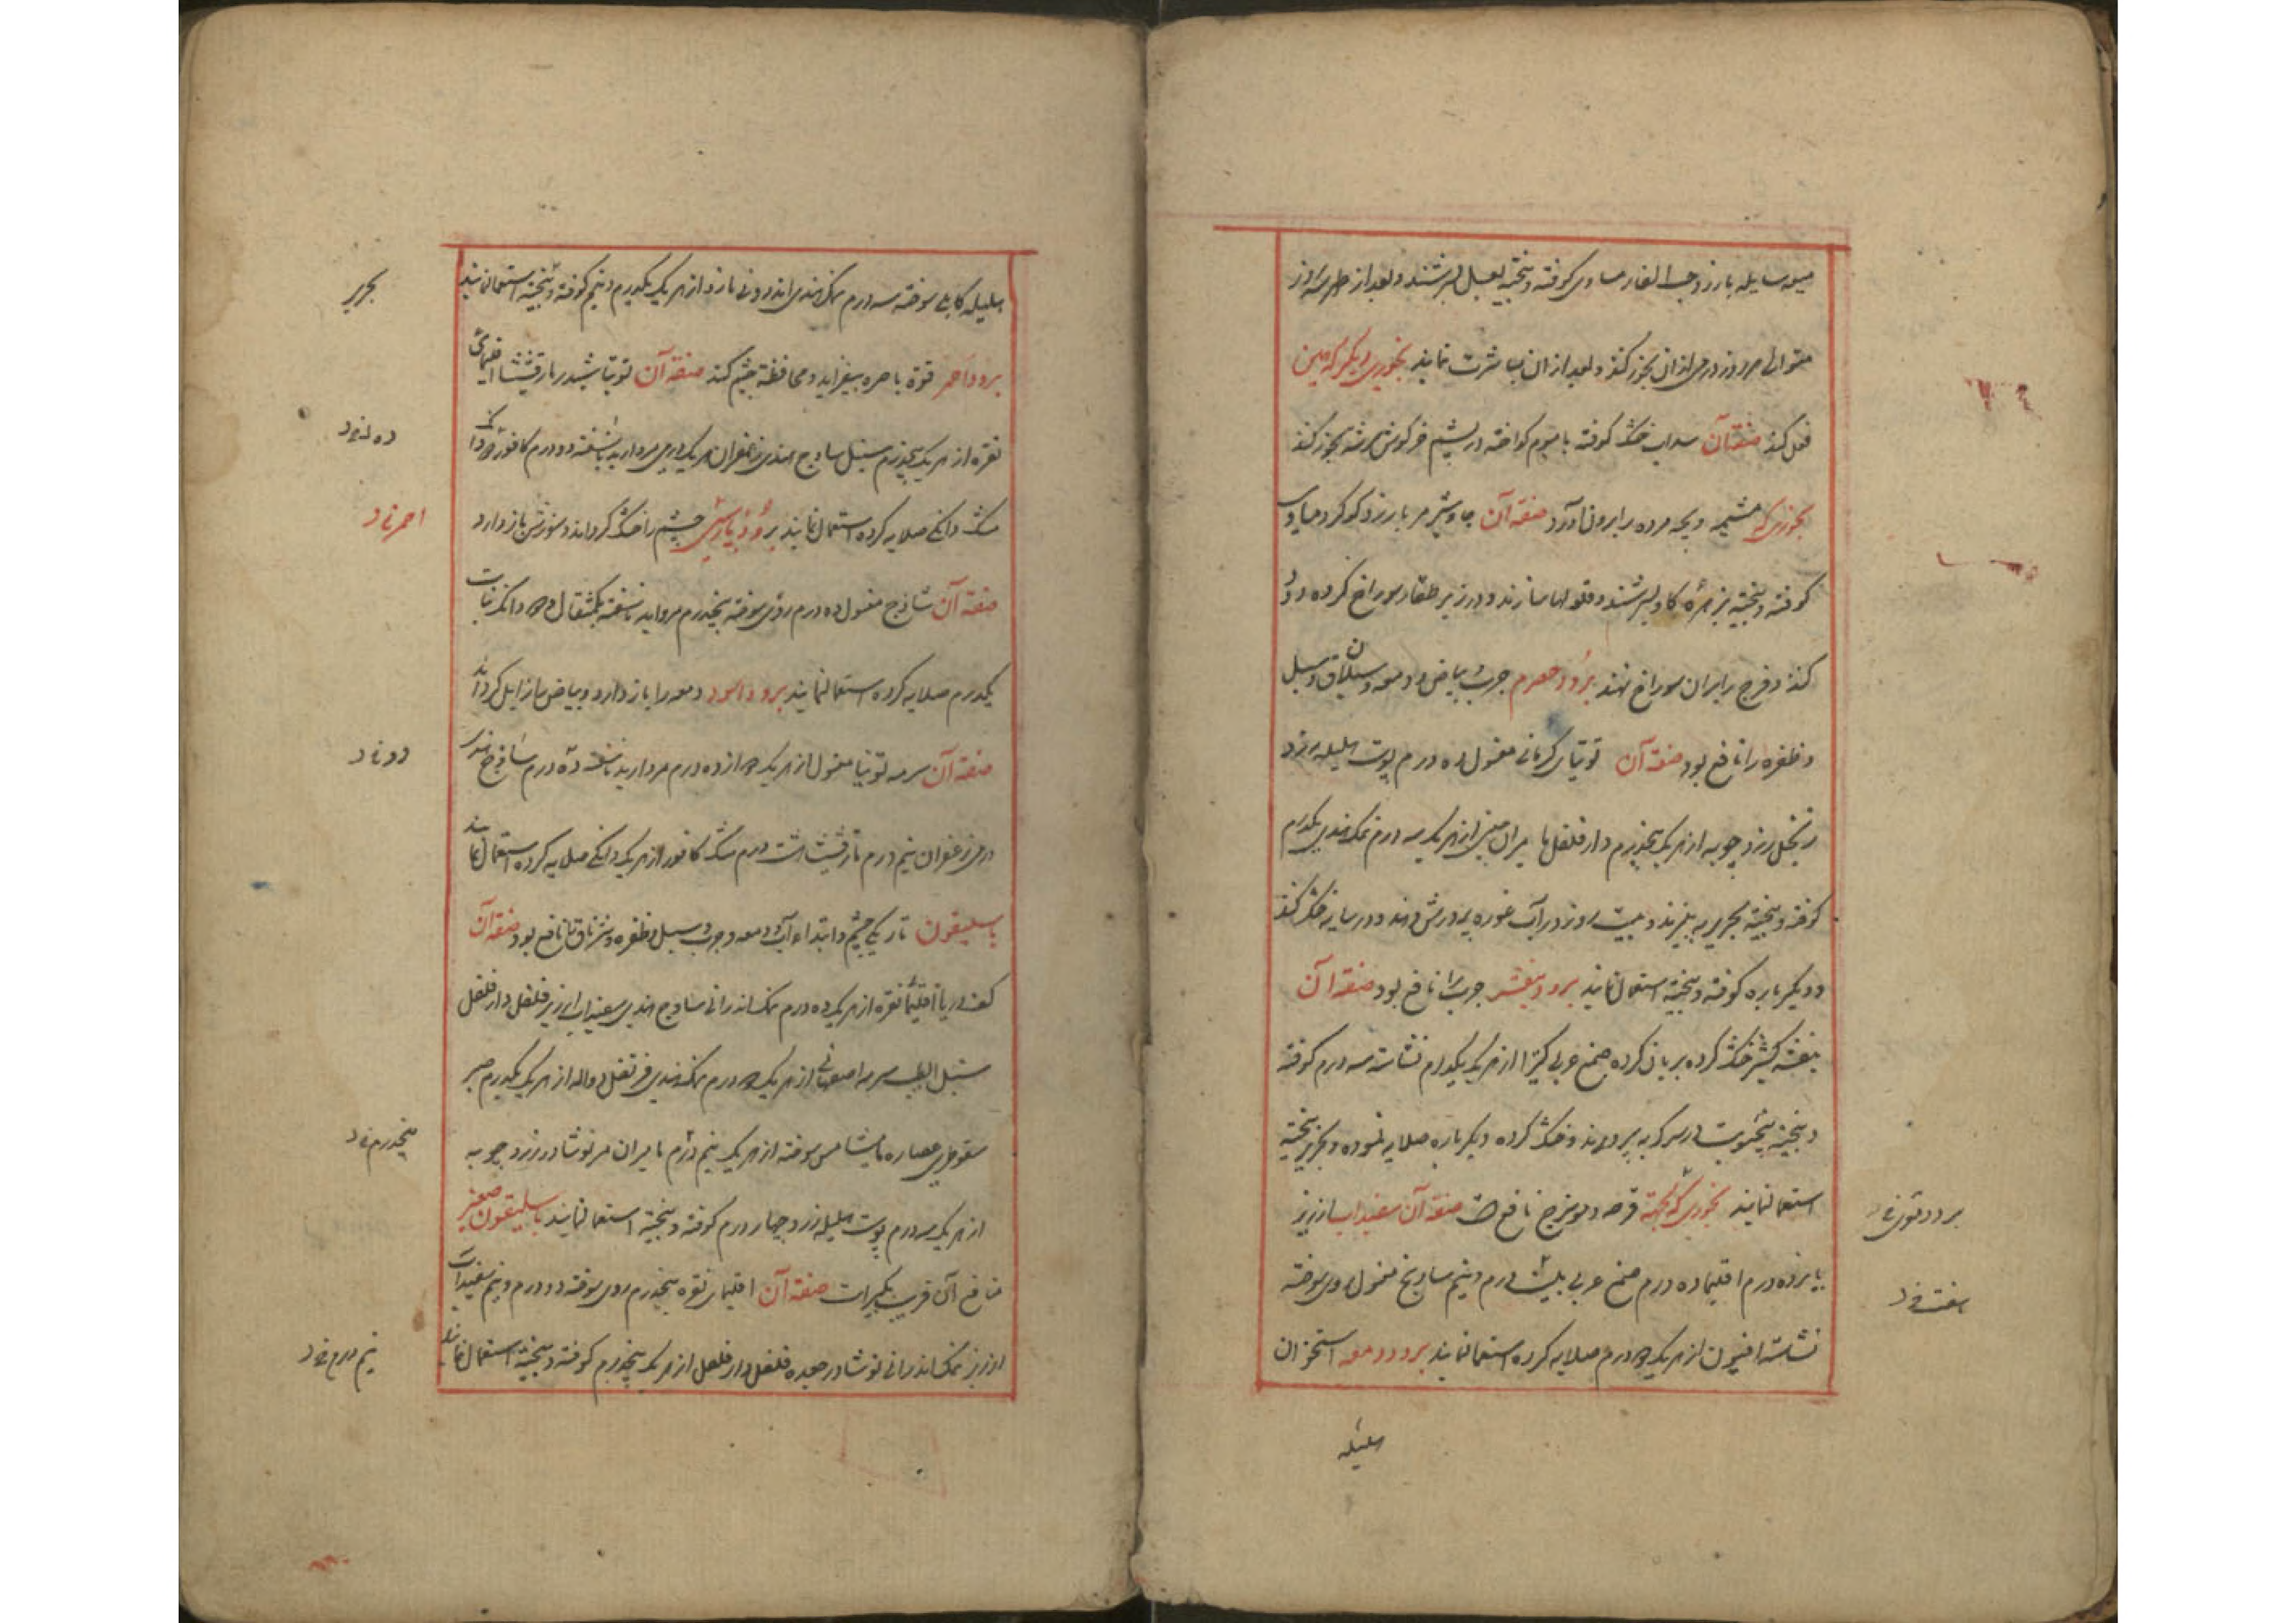 میعه سایله بارزد حب الغار مساوی کوفته و بیخته بعسل بسرشند و بعد از طهر سه روز
متوالی هر روز درمی از آن بخور کنند و بعد از آن مباشرت نمایند بخوری دیگر که همین
فعل کند صفة آن سداب خشک کوفته با موم کداخته در پشم خرکوش سرشته بخور کند
بخوری که مشیمه و بچه مرده را برون آورد صفة آن جاوشیر مر بارزد کوکرد مساوی
کوفته و بیخته بزهره کاو بسرشند و قلولها سازند و در زیر طغار سوراخ کرده دود
کنند و فرج را بران سوراخ نهند برود حصرم جرب بیاض و دمعه و سیلان و سلاق و سبل
و ظفره را نافع بود صفة آن توتیای کرمانی مغسول ده درم پوست هلیله زرد
زنجبیل زرد چوبه از هر یک پنجدرم دارفلفل مامیران چینی از هر یک سه درم نمک هندی یکدرم
کوفته و بیخته بحریر به بیزند و بیست روز در آب غوره پرورش دهند و در سایه خشک کنند
و دیکر باره کوفته و بیخته استعمال نمایند برود بنفشه جرب را نافع بود صفة آن
بنفشه کشنیز خشک کرده بریان کرده صمغ عربی کتیرا از هر یک یکدرم نشاسته سه درم کوفته
و بیخته در سرکه به پرورند و خشک کرده دیکر باره صلایه نموده و بحریر بیخته
استعمال نمایند بخوری که بجهة قرحه و مورسرج نافع است صفة آن سفیداب ارزیز
پانزده درم اقلیمیا ده درم صمغ عربی بیست درم و نیم سادنج مغسول روی سوخته
نشاسته افیون از هر یک درم صلایه کرده استعمال نمایند برود دمعه استخوان
هلیله
برود
هلیله کابلی سوخته سه درم نمک هندی اندرونی مازو از هر یک یکدرم و نیم کوفته و بیخته استعمال نمایند
برود احمر قوة باصره بیفزاید و محافظة چشم کند صفة آن توتیا شبدر مارقشیشا اقلیمیای
نقره از هر یک پنجدرم سنبل سادج هندی زعفران هر یک درمی مروارید ناسفته دو درم کافور
مشک دانکی صلایه کرده استعمال نمایند برود پارسی چشم را خشک کرداند و سوزش باز دارد
صفة آن شادنج مغسول ده درم روی سوخته پنجدرم مروارید ناسفته یکمثقال دانک نبات
یکدرم صلایه کرده استعمال نمایند برود اسود دمعه را باز دارد و بیاض را زایل کرداند
صفة آن سرمه توتیا مغسول از هر یک دوازده درم مروارید ناسفته ده درم سادج هندی
درمی زعفران نیم درم مارقشیشا هشت درم مشک کافور از هر یک دانکی صلایه کرده استعمال نمایند
باسلیقون تاریکی چشم و ابتداء آب و دمعه و جرب و سبل و ظفره و شرناق را نافع بود صفة آن
کف دریا اقلیمیا نقره از هر یک ده درم نمک اندرانی سادج هندی سفیداب ارزیز فلفل دارفلفل
سنبل الطیب سرمه اصفهانی از هر یک درم نمک هندی قرنفل دواله از هر یک یکدرم صبر
سقوطری عصاره مامیثا مس سوخته از هر یک نیم درم مامیران مر نوشادر زرد چوبه
از هر یک سه درم پوست هلیله زرد چهار درم کوفته و بیخته استعمال نمایند باسلیقون صغیر
منافع آن قریب بکبیر است صفة آن اقلیمیای نقره پنجدرم روی سوخته دو درم و نیم سفیداب
ارزیز نمک اندرانی نوشادر جعده فلفل دارفلفل از هر یک پنجدرم کوفته و بیخته استعمال نمایند
بحریر